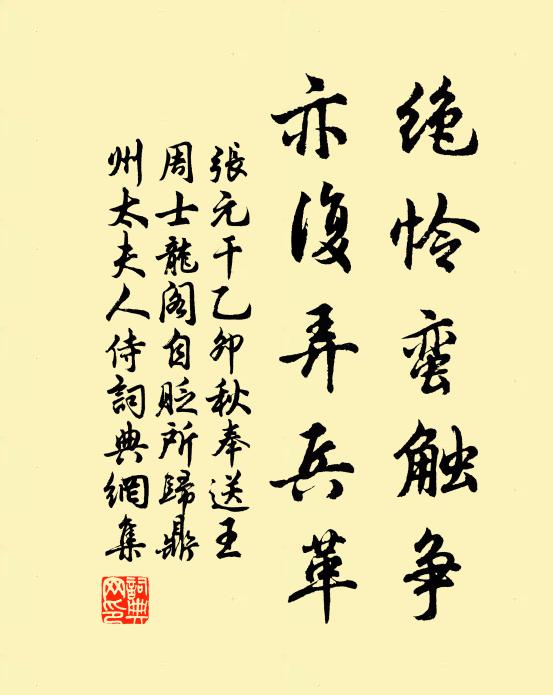 绝怜蛮触争
亦复弄兵革
張元干乙卯秋奉送王
周士龍阁自贬所歸鼎
州太夫人侍詞典網集
詞典
网印